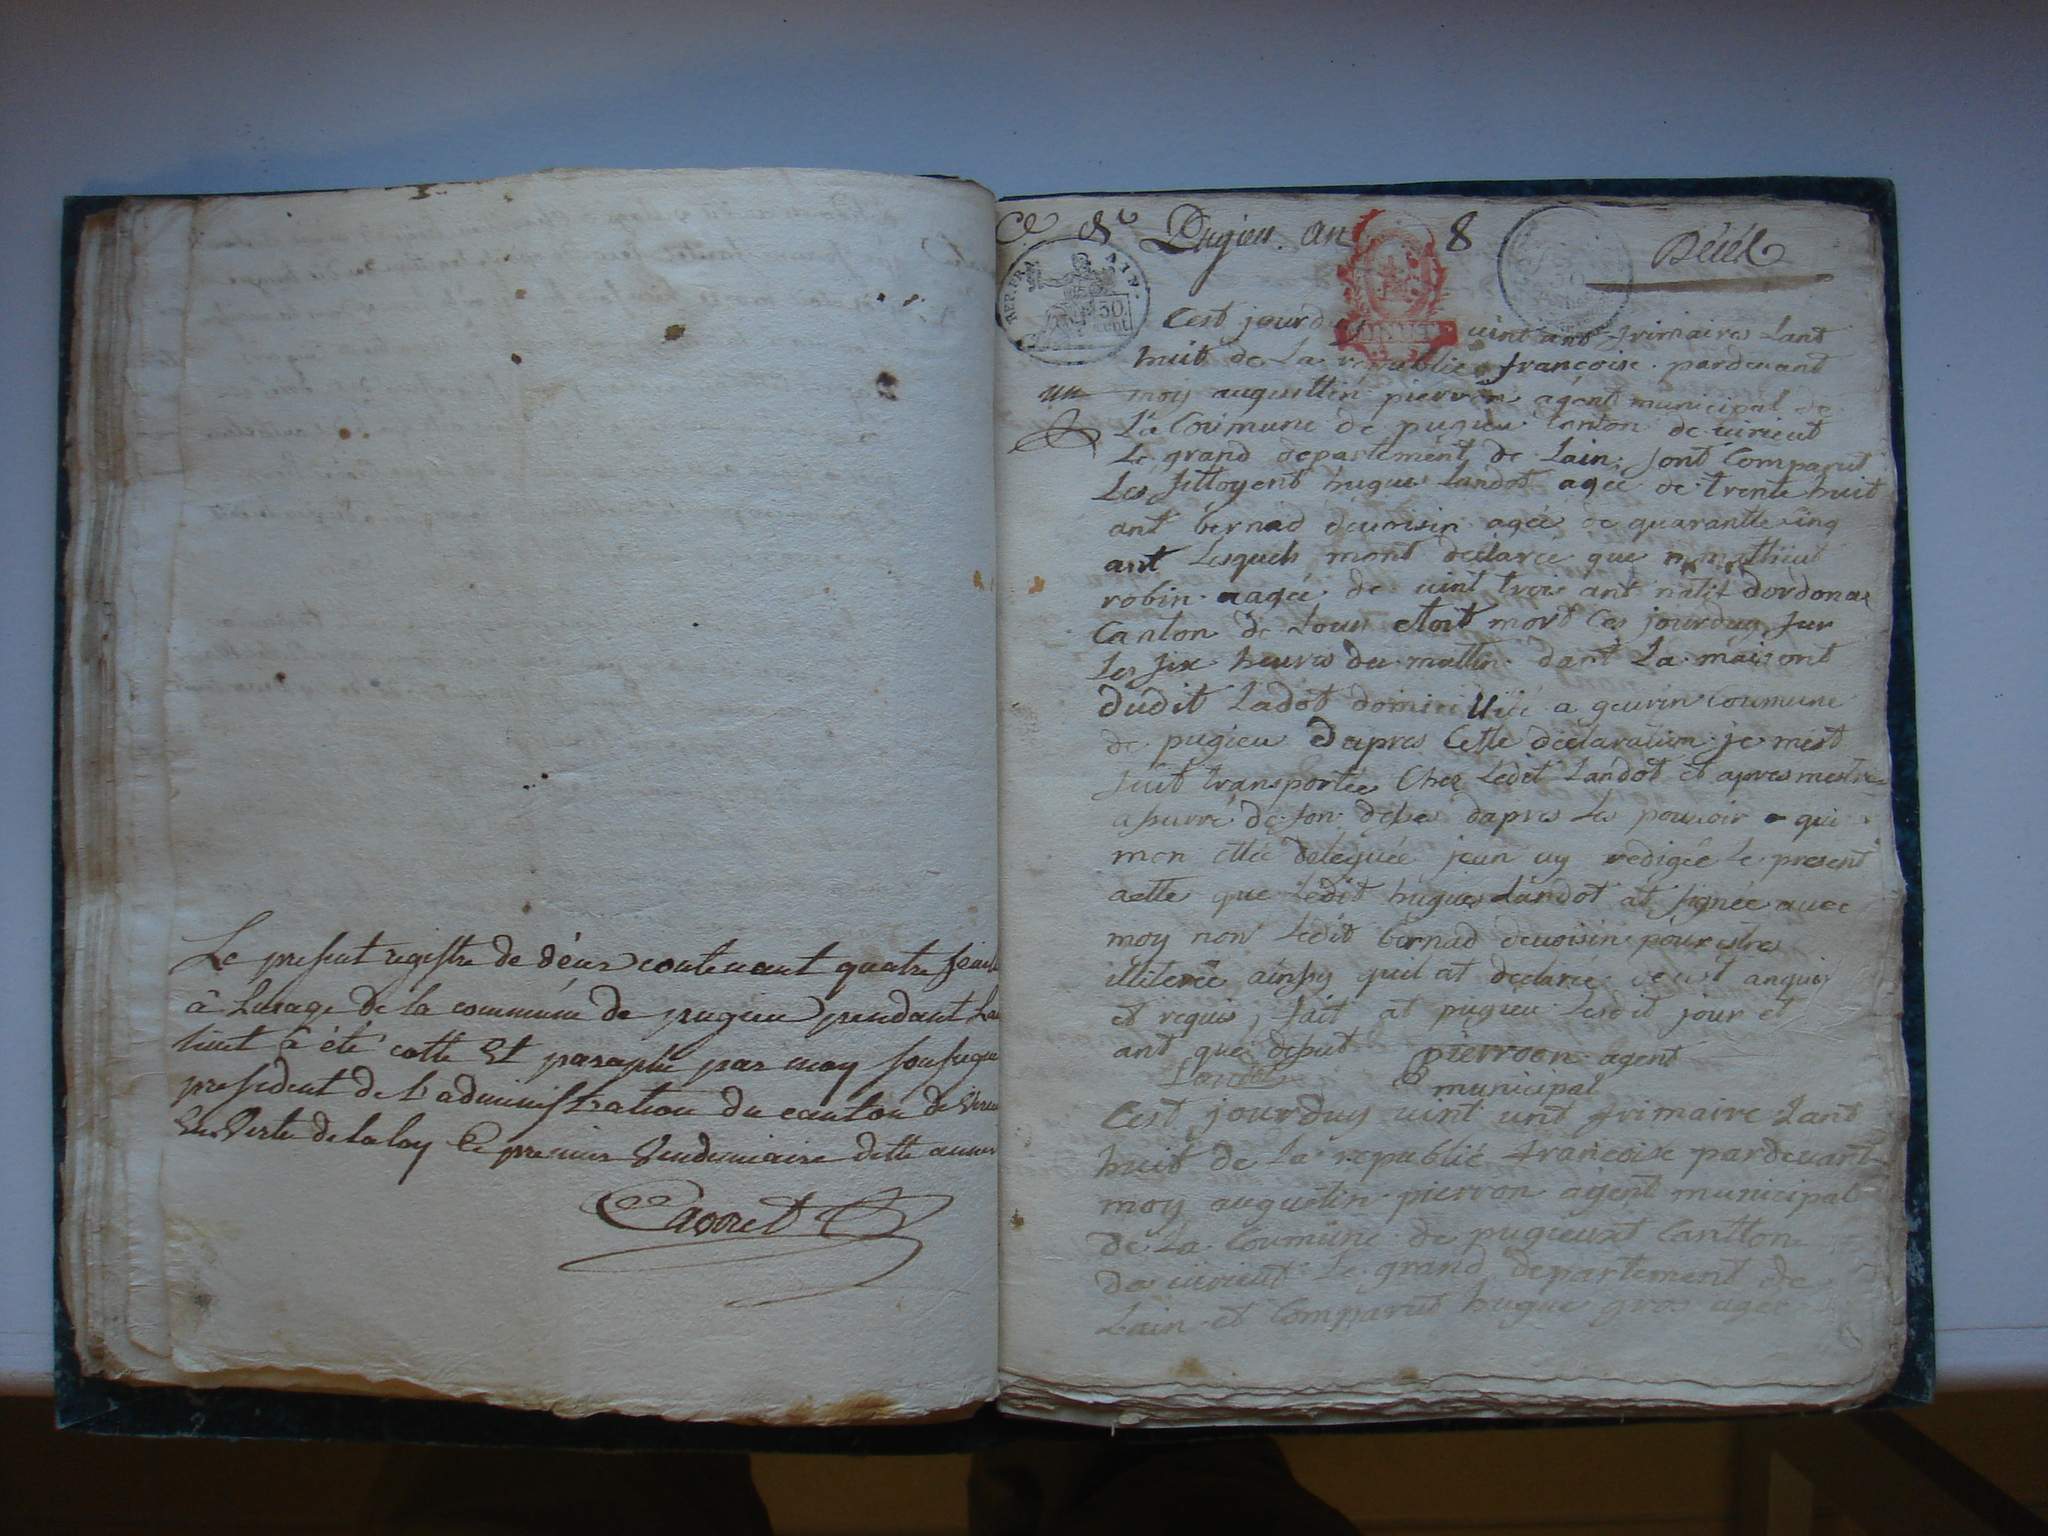 Le present registre de déces contenant quatre feuill
à Lusage de la commune de pugieu pendant Lan
huit a été cotté Et paraphé par moy soussigné
president de l'administration du canton de Virieu
En Vertu de la loy Le premier Vendemiaire dette année
Carret
Pugieu. an 8 Décés
REP. FRA. AIN.
50 cent
Cest jourd vint unt frimaires Lant
huit de La republié francoise pardevant
un moy augusttin pierron agent municipal de
La Coumune de pugieu Canton de virieut
Le grand departement de Lain, sont Comparut
Les sittoyent hugue Landot agée de trente huit
ant bernad devoisin agée de quarantte cinq
ant Lesquels mont declarée que mathieut
robin agée de vint trois ant natif dordonas
Canton de etoit mort Ces jourduy sur
Les six heures du mattin dant La maisont
dudit Ladot domicillié a geuvin Coumune
de pugieu Dapres Cette declaration je mest
suit transportée Chez Ledit Landot et apres mestre
assurré de son déses dapres Les pouvoir qui
mon ettée deleguée jean ay redigée Le present
actte que Ledit hugues Landot at signée avec
moy non Ledit bernad devoisin pour estres
illiterée ainsy quil at declarée
et requis, fait at pugieu Lesdit jour et
ant que desut pierroon agent
Landot municipal
Cest jourduy vint unt frimaire Lant
huit de La republié francoise pardevant
moy augustin pierron agent municipal
de La Coumune de pugieut Cantton
de virieut Le grand departement de
Lain et Comparut hugue gros agée